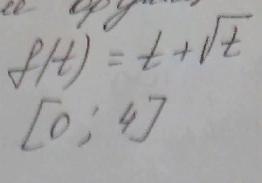 f(t) = t + √t
[0; 4]